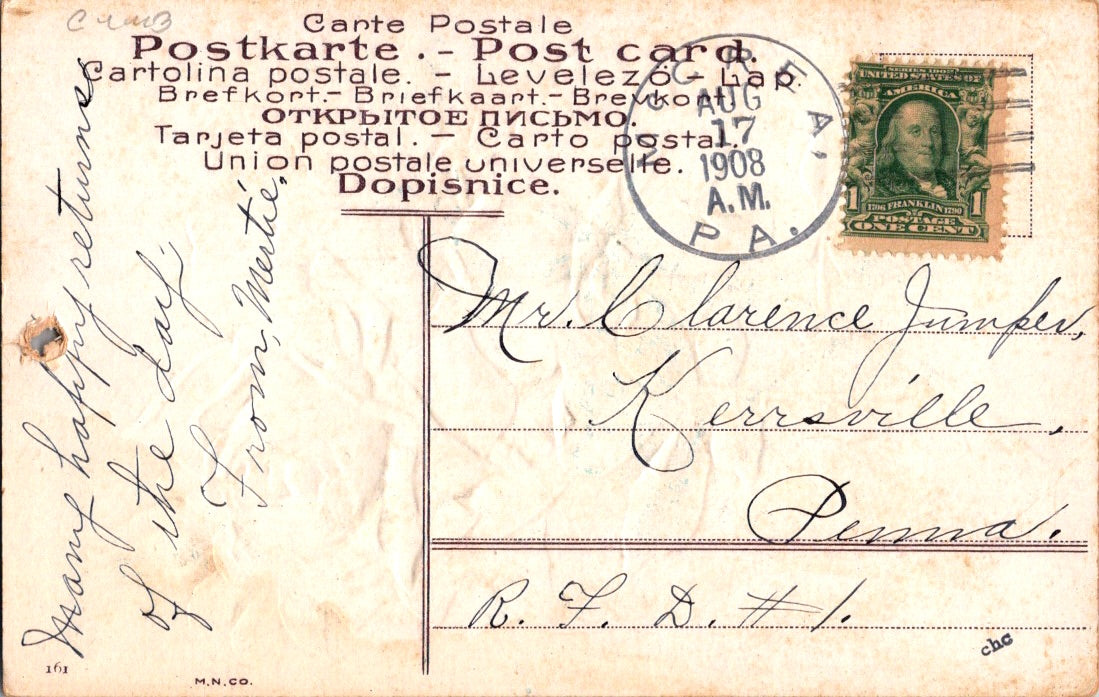 Carte Postale
Postkarte. - Post card.
Cartolina postale. - Levelező-Lap.
Brefkort.- Briefkaart.- Brevkort.
ОТКРЫТОЕ ПИСЬМО.
Tarjeta postal. — Carto postal.
Union postale universelle.
Dopisnice.
AUG
17
1908
A.M.
PA.
SERIES 1902
UNITED STATES OF
AMERICA
1706 FRANKLIN 1790
1 1
POSTAGE
ONE CENT
Many happy returns
of the day.
From, Mertie.
Mr. Clarence Jumper,
Kerrsville,
Penna.
R. F. D. # 1.
chc
161
M.N.CO.